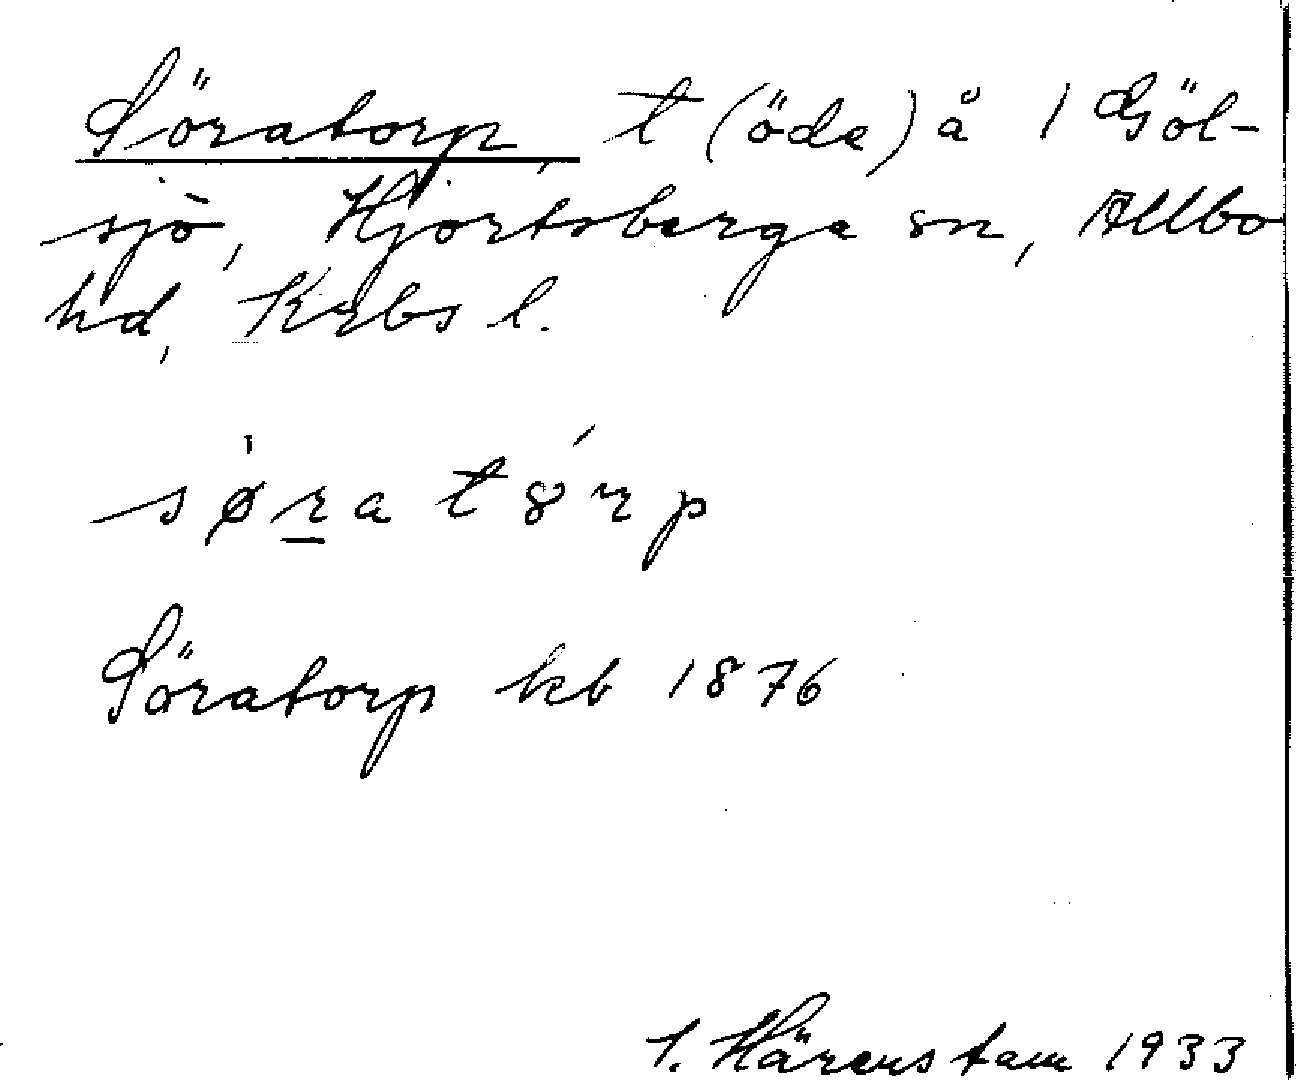 Söratorp, t (öde) å 1 Göl-
sjö, Hjortsberga sn, Allbo
hd, Krbs l.
sø̱ra tȣ́rp
Söratorp kb 1876
I. Härenstam 1933